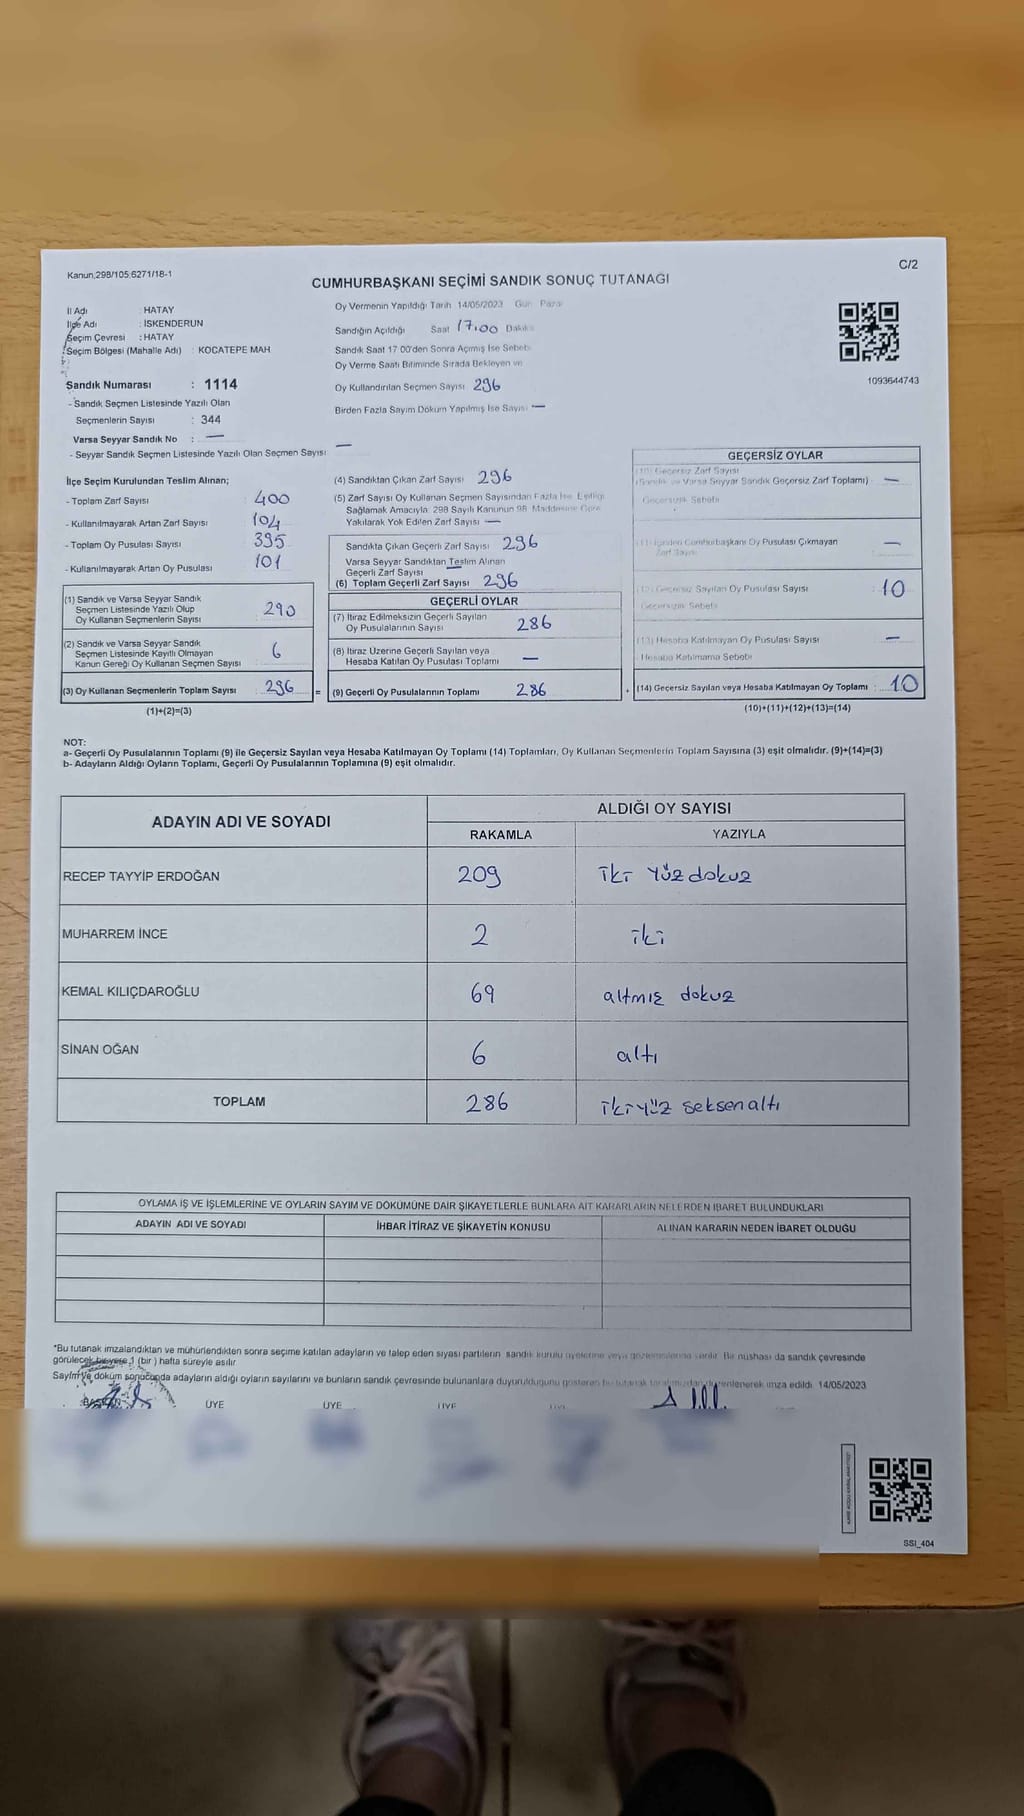 Kanun,298/105;6271/18-1
C/2
CUMHURBAŞKANI SEÇİMİ SANDIK SONUÇ TUTANAĞI
İl Adı : HATAY
İlçe Adı : İSKENDERUN
Seçim Çevresi : HATAY
Seçim Bölgesi (Mahalle Adı) : KOCATEPE MAH
Sandık Numarası : 1114
- Sandık Seçmen Listesinde Yazılı Olan
Seçmenlerin Sayısı : 344
Varsa Seyyar Sandık No : —
- Seyyar Sandık Seçmen Listesinde Yazılı Olan Seçmen Sayısı —
Oy Vermenin Yapıldığı Tarih 14/05/2023 Gün Pazar
Sandığın Açıldığı Saat 17.00 Dakika
Sandık Saat 17 00'den Sonra Açımış İse Sebebi
Oy Verme Saati Bitiminde Sırada Bekleyen ve
Oy Kullandırılan Seçmen Sayısı 296
Birden Fazla Sayım Döküm Yapılmış İse Sayısı —
1093644743
İlçe Seçim Kurulundan Teslim Alınan;
- Toplam Zarf Sayısı 400
- Kullanılmayarak Artan Zarf Sayısı 104
- Toplam Oy Pusulası Sayısı 395
- Kullanılmayarak Artan Oy Pusulası 101
(1) Sandık ve Varsa Seyyar Sandık
Seçmen Listesinde Yazılı Olup
Oy Kullanan Seçmenlerin Sayısı : 290
(2) Sandık ve Varsa Seyyar Sandık
Seçmen Listesinde Kayıtlı Olmayan
Kanun Gereği Oy Kullanan Seçmen Sayısı : 6
(3) Oy Kullanan Seçmenlerin Toplam Sayısı : 296 =
(1)+(2)=(3)
(4) Sandıktan Çıkan Zarf Sayısı 296
(5) Zarf Sayısı Oy Kullanan Seçmen Sayısından Fazla İse, Eşitliği
Sağlamak Amacıyla 298 Sayılı Kanunun 98. Maddesine Göre
Yakılarak Yok Edilen Zarf Sayısı —
Sandıkta Çıkan Geçerli Zarf Sayısı 296
Varsa Seyyar Sandıktan Teslim Alınan
Geçerli Zarf Sayısı —
(6) Toplam Geçerli Zarf Sayısı 296
GEÇERLİ OYLAR
(7) İtiraz Edilmeksizin Geçerli Sayılan
Oy Pusulalarının Sayısı 286
(8) İtiraz Üzerine Geçerli Sayılan veya
Hesaba Katılan Oy Pusulası Toplamı —
(9) Geçerli Oy Pusulalarının Toplamı 286 +
GEÇERSİZ OYLAR
(10) Geçersiz Zarf Sayısı
(Sandık ve Varsa Seyyar Sandık Geçersiz Zarf Toplamı) —
Geçersizlik Sebebi
(11) İçinden Cumhurbaşkanı Oy Pusulası Çıkmayan
Zarf Sayısı —
(12) Geçersiz Sayılan Oy Pusulası Sayısı : 10
Geçersizlik Sebebi
(13) Hesaba Katılmayan Oy Pusulası Sayısı —
Hesaba Katılmama Sebebi
(14) Geçersiz Sayılan veya Hesaba Katılmayan Oy Toplamı : 10
(10)+(11)+(12)+(13)=(14)
NOT:
a- Geçerli Oy Pusulalarının Toplamı (9) ile Geçersiz Sayılan veya Hesaba Katılmayan Oy Toplamı (14) Toplamları, Oy Kullanan Seçmenlerin Toplam Sayısına (3) eşit olmalıdır. (9)+(14)=(3)
b- Adayların Aldığı Oyların Toplamı, Geçerli Oy Pusulalarının Toplamına (9) eşit olmalıdır.
ADAYIN ADI VE SOYADI
ALDIĞI OY SAYISI
RAKAMLA YAZIYLA
RECEP TAYYİP ERDOĞAN 209 iki yüz dokuz
MUHARREM İNCE 2 iki
KEMAL KILIÇDAROĞLU 69 altmış dokuz
SİNAN OĞAN 6 altı
TOPLAM 286 iki yüz seksen altı
OYLAMA İŞ VE İŞLEMLERİNE VE OYLARIN SAYIM VE DÖKÜMÜNE DAİR ŞİKAYETLERLE BUNLARA AİT KARARLARIN NELERDEN İBARET BULUNDUKLARI
ADAYIN ADI VE SOYADI İHBAR İTİRAZ VE ŞİKAYETİN KONUSU ALINAN KARARIN NEDEN İBARET OLDUĞU
*Bu tutanak imzalandıktan ve mühürlendikten sonra seçime katılan adayların ve talep eden siyasi partilerin sandık kurulu üyelerine veya gözlemcilerine verilir. Bir nüshası da sandık çevresinde
görülecek bir yere 1 (bir ) hafta süreyle asılır
Sayım ve döküm sonucunda adayların aldığı oyların sayılarını ve bunların sandık çevresinde bulunanlara duyurulduğunu gösteren bu tutanak tarafımızdan düzenlenerek imza edildi. 14/05/2023
BAŞKAN ÜYE ÜYE ÜYE
SSI_404